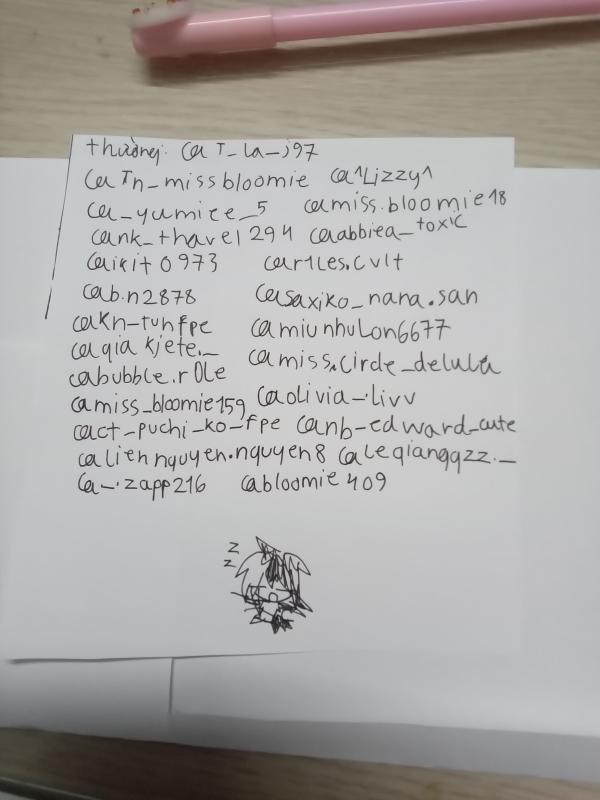 thường: @T_la_j97
@Tn_missbloomie @^Lizzy^
@_yumice_5 @miss.bloomie18
@nk_thavel294 @abbiea_toxic
@ikit0973 @r1les.cvlt
@b.n2878 @saxiko_nana.san
@kn_tunfpe @miunhulon6677
@gia kjete._ @miss.circle_delulu
@bubble.r0le
@miss_bloomie159 @olivia_.livv
@ct_puchi_ko_fpe @nb-edward_cute
@liennguyen.nguyen8 @legiangqzz._
@_.zapp216 @bloomie409
z
z